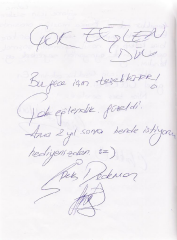 ÇOK EĞLEN
DİM
Bu gece için teşekkürler!
Çok eğlendik, güzeldi.
Ama 2 yıl sonra bende istiyorum
hediyenizden :)